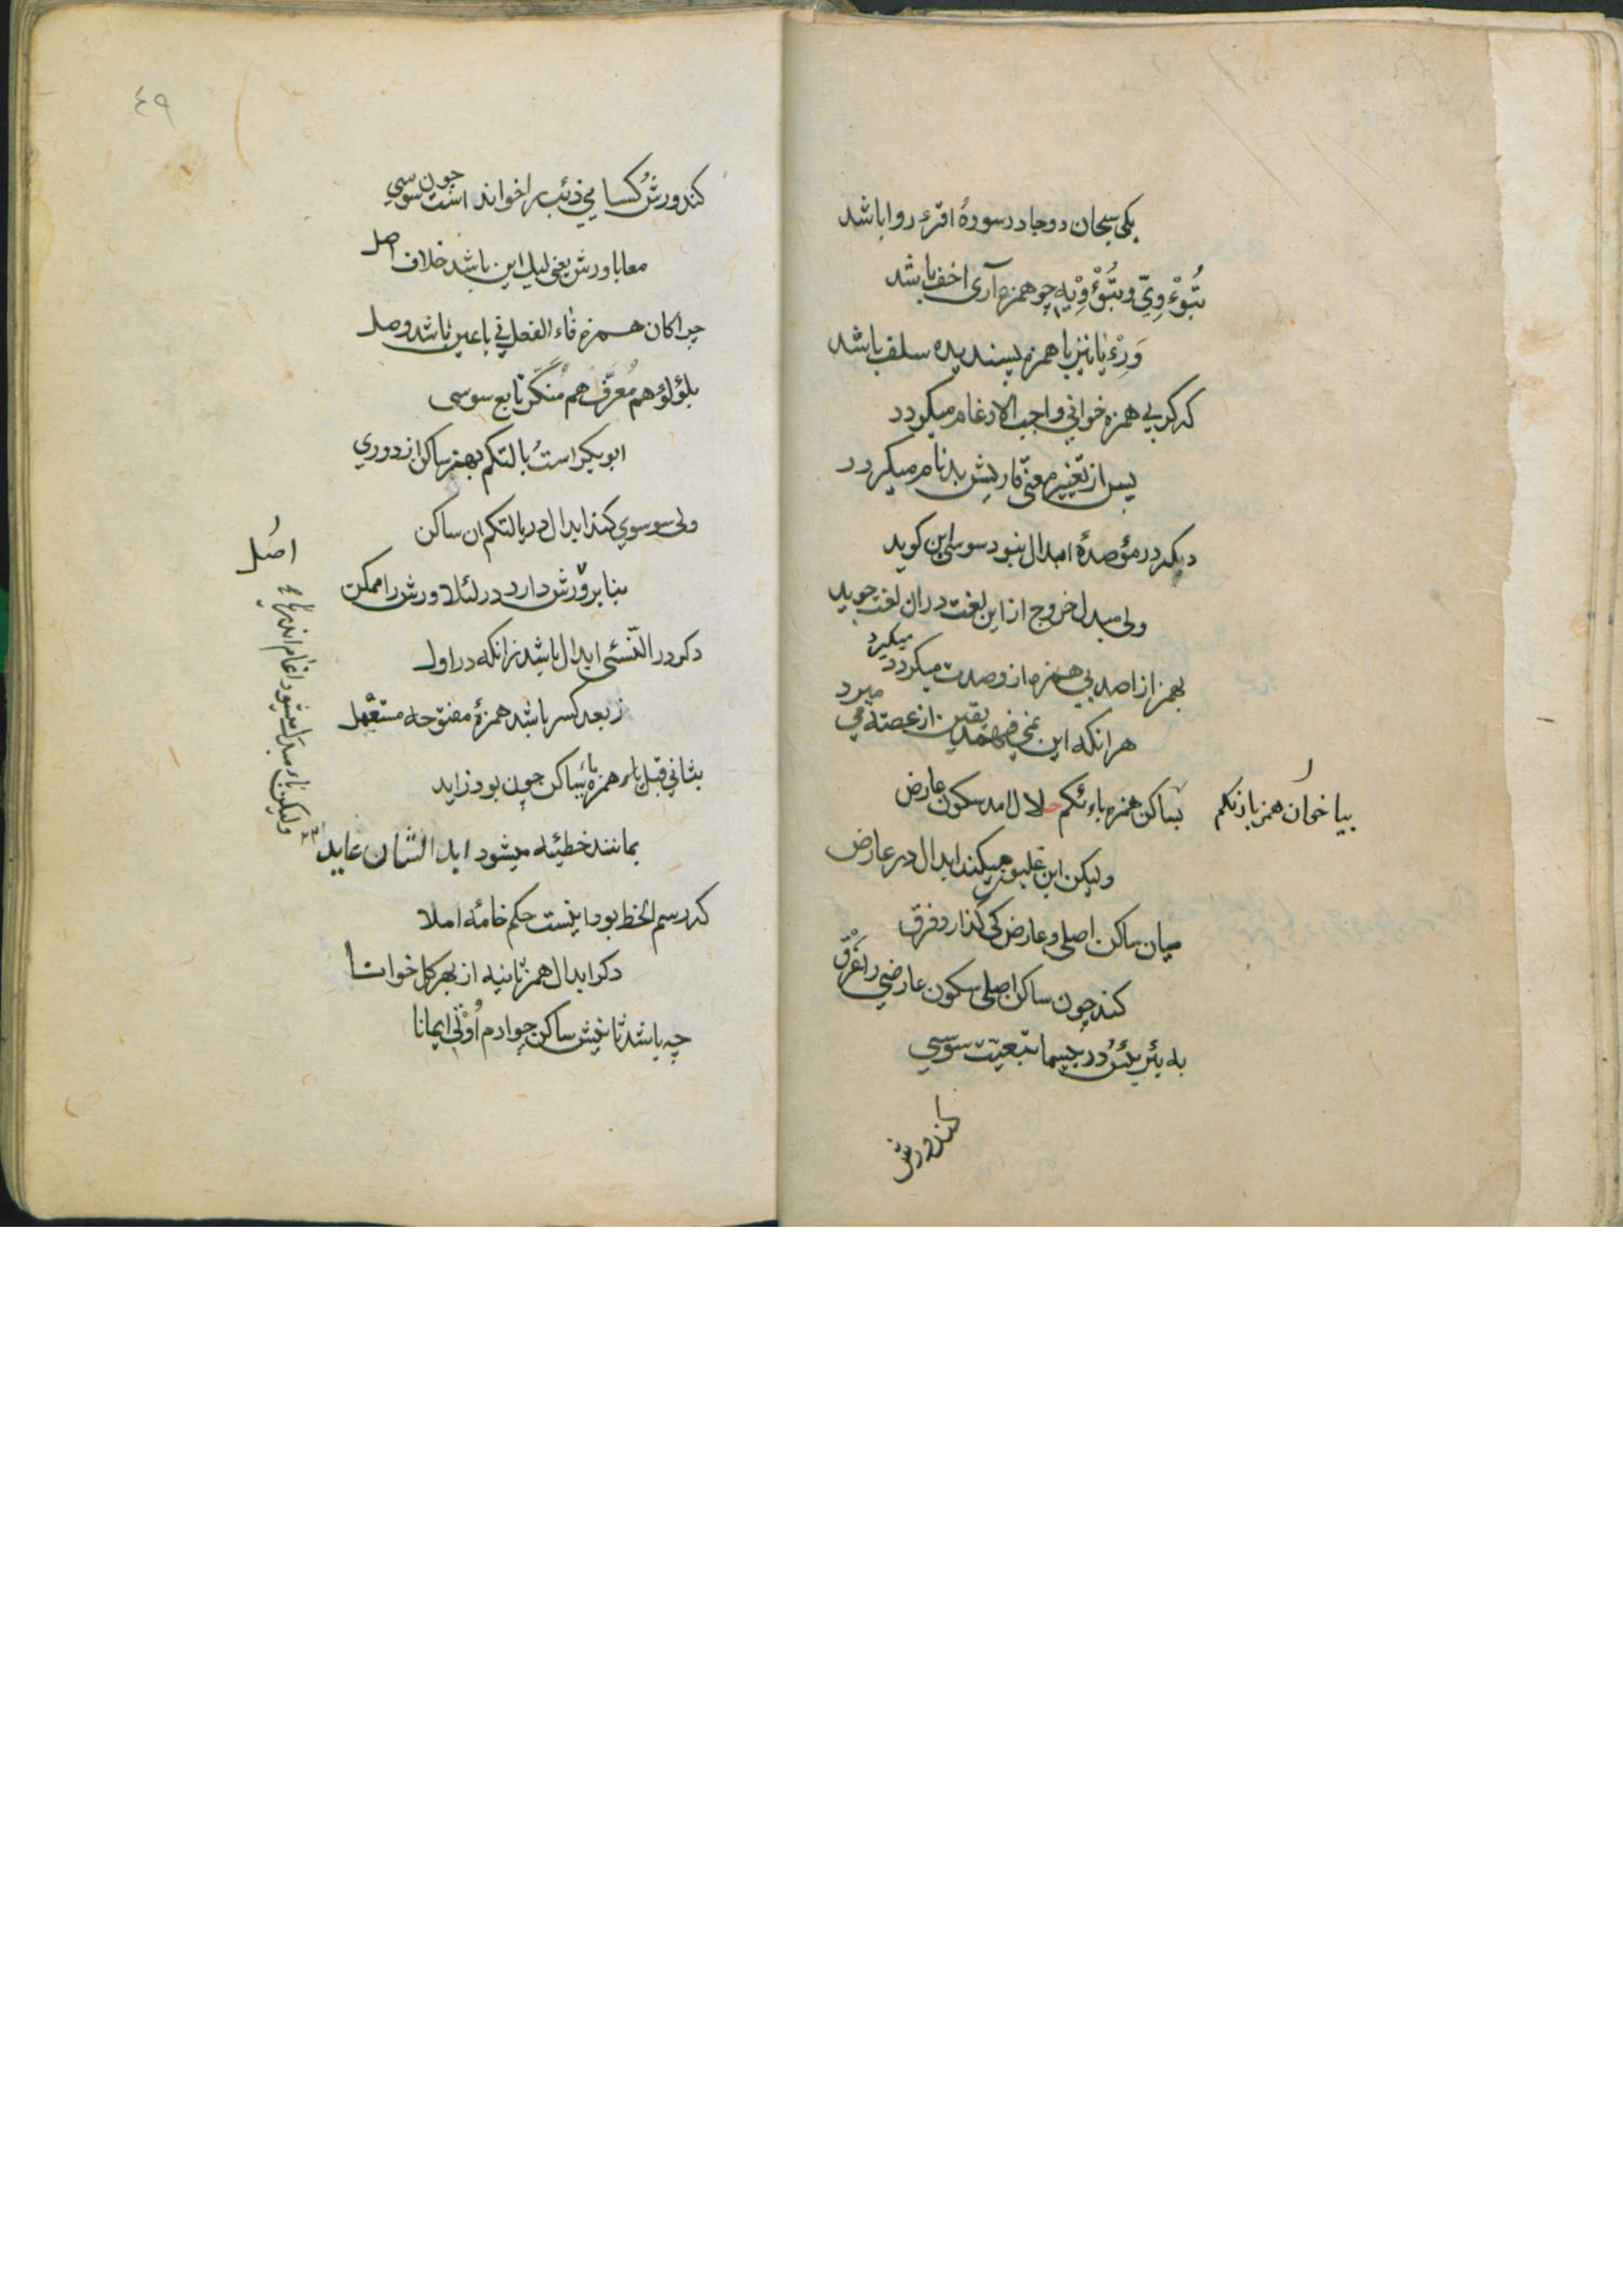 یکی سبحان دو جا در سورهٔ اقرء روا باشد
تُبْؤْوِیّ و تُبْؤْوِیْهِ چو همزه آری اخف باشد
وَرِءْیا نیز با همزه پسندیده سلف باشد
که کر بی همزه خوانی واجب الادغام میکردد
پس از تغییر معنی قاریش بدنام میکردد
دیکر در مؤصدهٔ ابدال نبود سوسی این کوید
ولی مبدل خروج از این لغت در ان لغت جوید
بهمز از اصد بی همزه از وصدت میکردد میکیرد
هر انکه این نمی فهمد یقین از غصته می میرد
بیا خوان همز بارئکم
بساکن همزه بارئکم حلال امد سکون عارض
ولیکن ابن غلبون میکند ابدال در عارض
میان ساکن اصلی و عارض کی کذارد فرق
کند چون ساکن اصلی سکون عارضی را غرق
به بئر بئس در بیسما تبعیت سوسی
کند ورش
٤٩
کند ورش کسایی ذئب را خواند است چون سوسی
معا با ورش یعنی لیل این باشد خلاف اصل
چرا کان همزه فاء الفعل نی با عین باشد وصل
بلؤلؤ هم مُعرّف هم مُنکّر تابع سوسی
ابو بکر است بالتکم بهمز ساکن از دوری
ولی سوسوی کند ابدال در یالتکم ان ساکن
بنا بر ورش دارد در لئلا ورش را ممکن
دکر در النّسئی ابدال باشد زانکه در اول
ز بعد کسر باشد همزهٔ مفتوحه مستعمل
بثانی قبل یاء همزه یا ساکن چون بود زاید
بمانند خطیئه میشود ابدالشان عاید
که رسم الخط بود اینست حکم خامهٔ املا
دکر ابدال همز ثانیه از بهر کل خوانا
چه باشد ثانیش ساکن چو ادم اُوْتی ایمانا
اصل
ولیکن یاء مبدل میشود ادغام اندر یاء